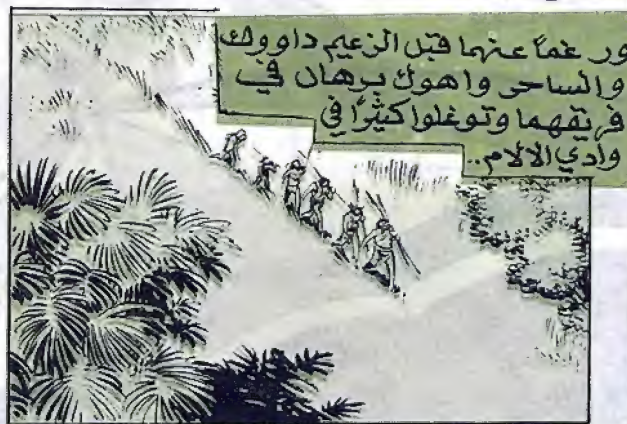 ور غماً عنهما قبل الزعيم داووك
والساحر واهوك برهان في
فريقهما وتوغلوا كثيرًا في
وادي الالام..